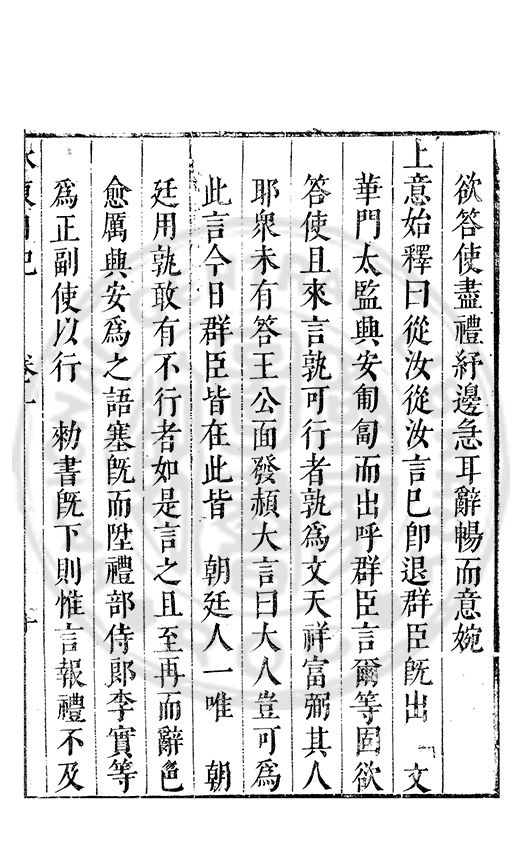 欲答使盡禮紓邊急耳辭暢而意婉
上意始釋曰從汝從汝言已卽退群臣旣出　文
華門太監興安匍匐而出呼群臣言爾等固欲
答使且來言孰可行者孰爲文天祥富弼其人
耶衆未有答王公面發赬大言曰大人豈可爲
此言今日群臣皆在此皆　朝廷人一唯　朝
廷用孰敢有不行者如是言之且至再而辭色
愈厲興安爲之語塞旣而陞禮部侍郎李實等
爲正副使以行　勑書旣下則惟言報禮不及